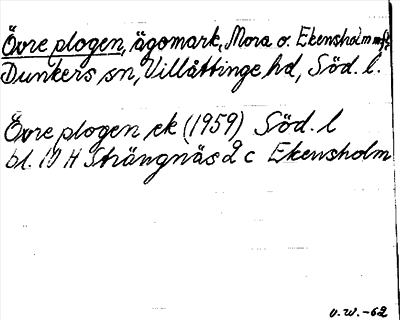 Övre plogen, ägomark, Mora o. Ekensholm m fl
Dunkers sn, Villåttinge hd, Söd. l.
Övre plogen ek (1959) Söd. l
bl. 10 H Strängnäs 2 c Ekensholm
v.w.-62